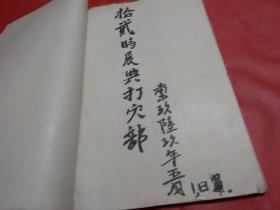 拾贰时辰典打穴部
壹玖陆玖年五月
1日